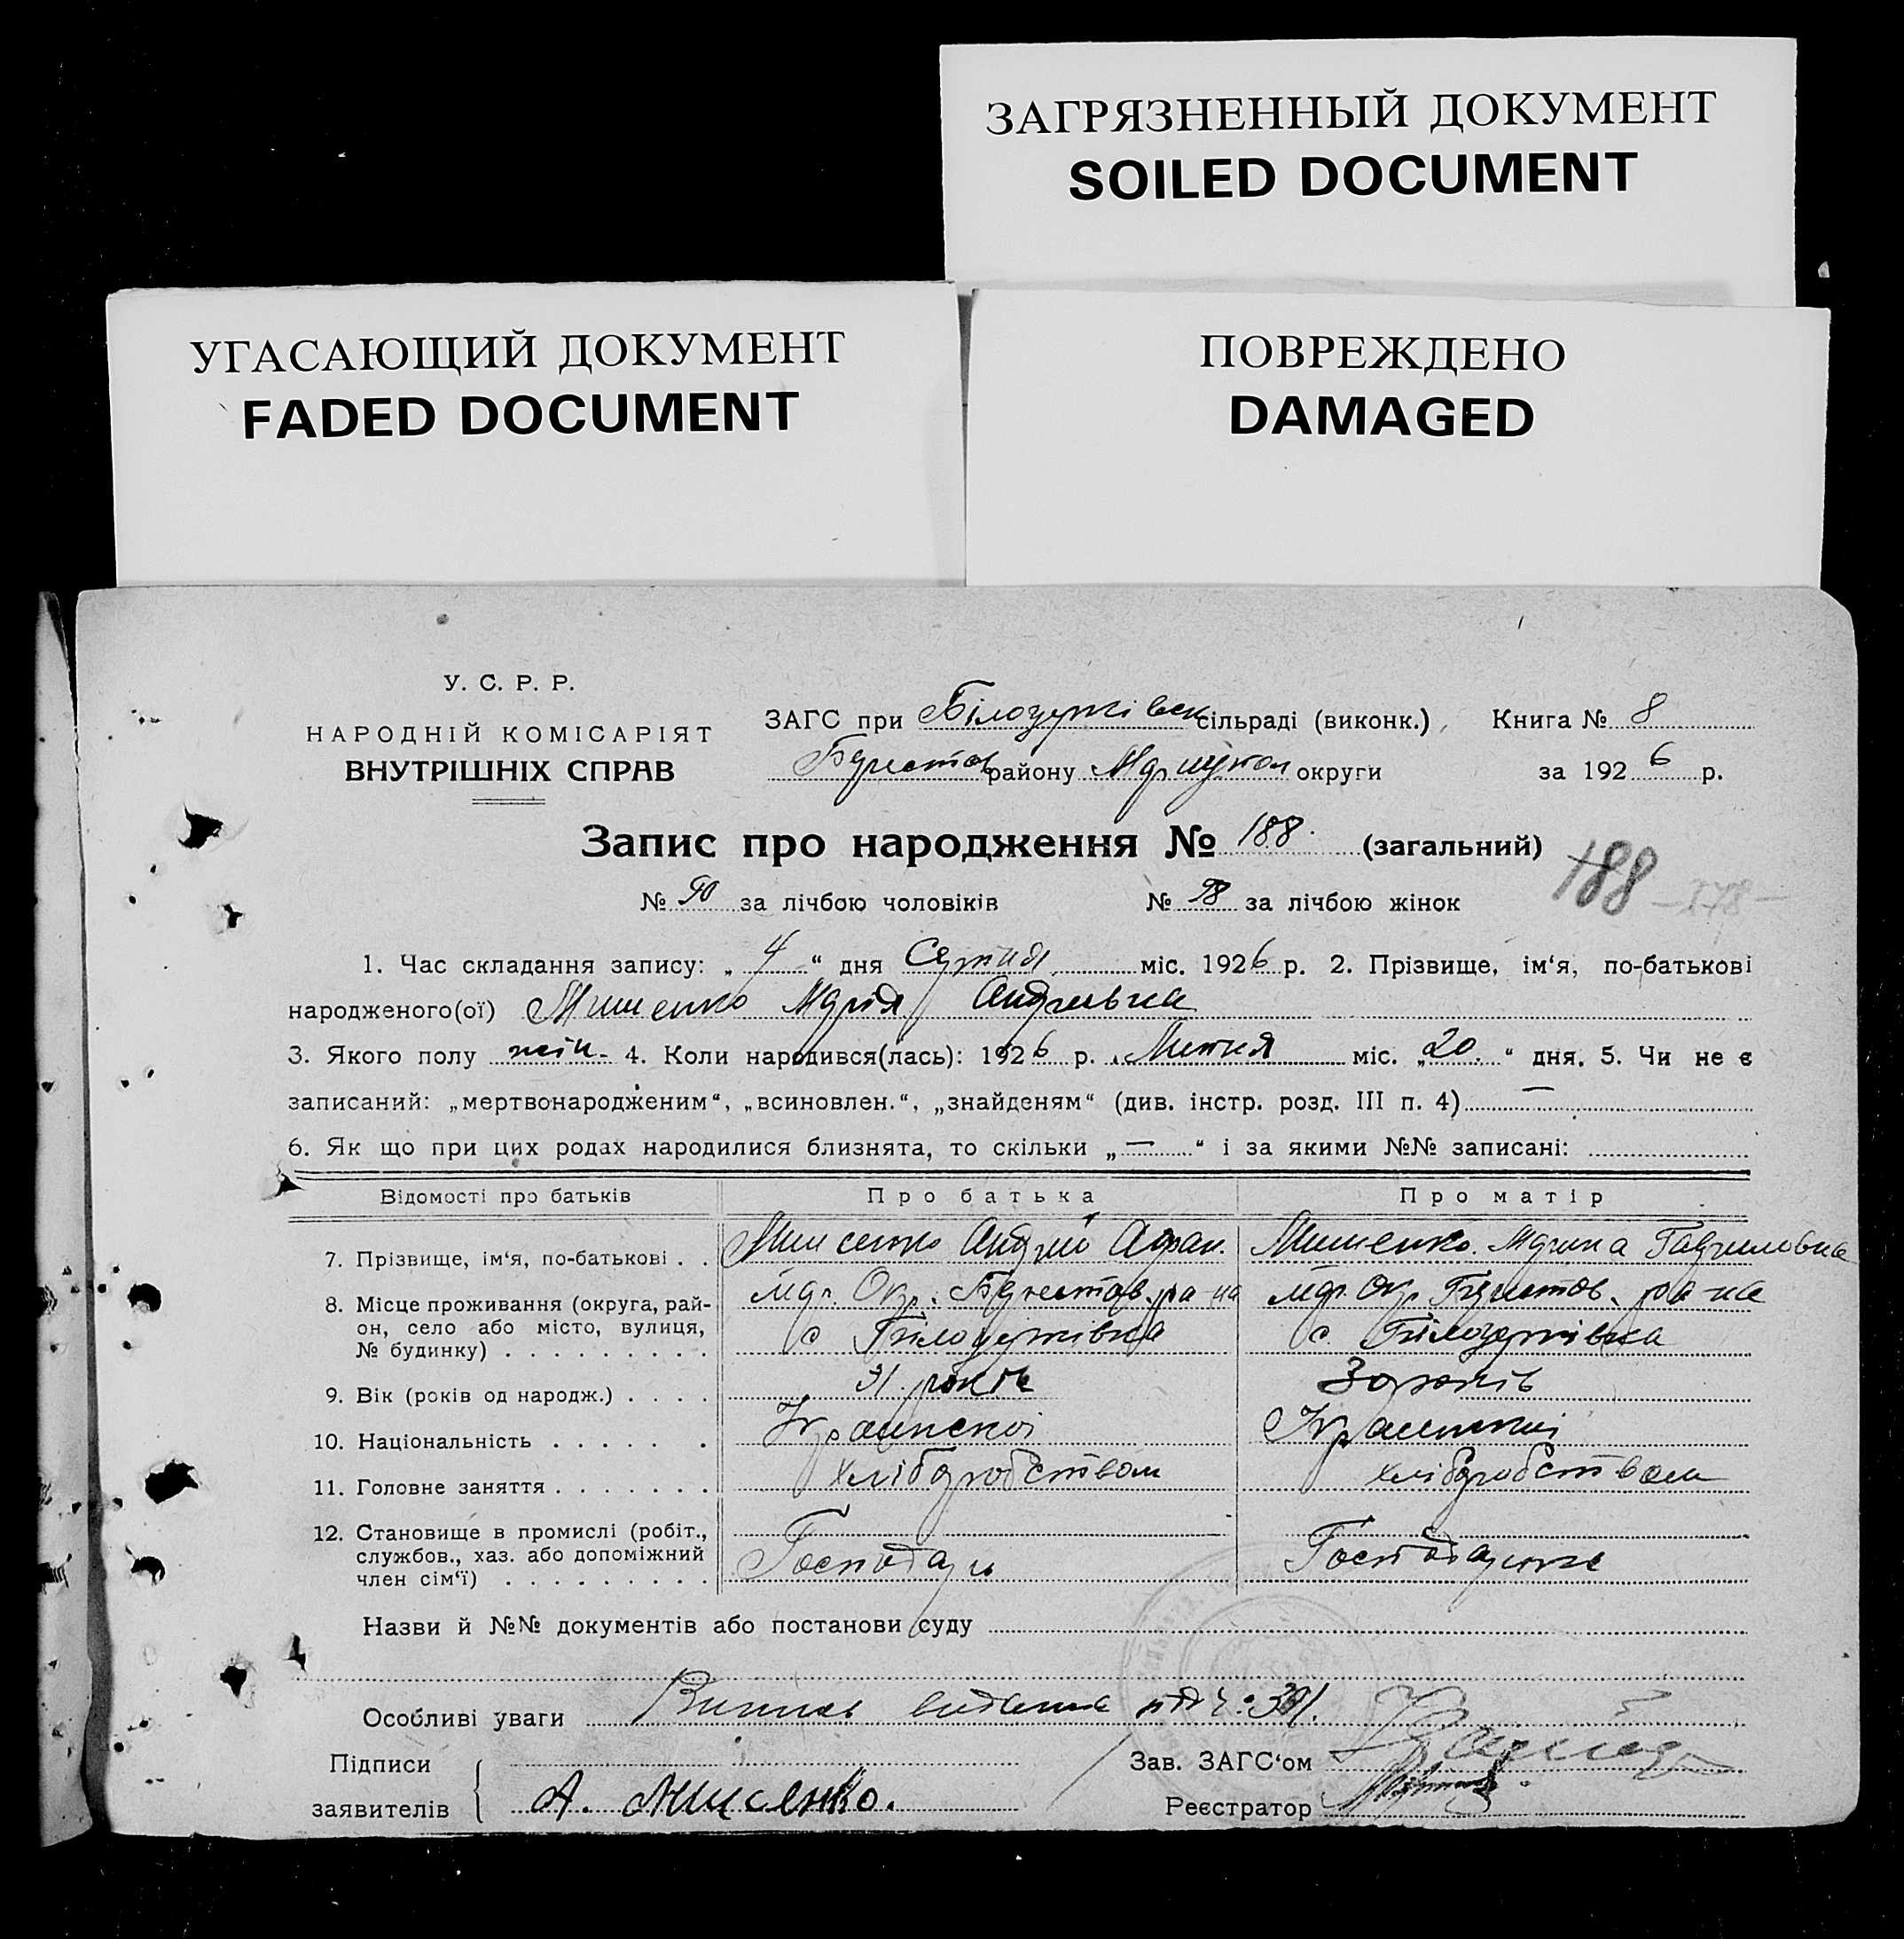 ЗАГРЯЗНЕННЫЙ ДОКУМЕНТ
SOILED DOCUMENT
УГАСАЮЩИЙ ДОКУМЕНТ
FADED DOCUMENT
ПОВРЕЖДЕНО
DAMAGED
У. С. Р. Р.
НАРОДНІЙ КОМІСАРІЯТ
ВНУТРІШНІХ СПРАВ
ЗАГС при сільраді (виконк.) Книга № 8
району Маріупол округи за 1926 р.
Запис про народження № 188 (загальний)
188 -178-
№ 90 за лічбою чоловіків № 98 за лічбою жінок
1. Час складання запису: „4“ дня Серпня міс. 1926 р. 2. Прізвище, ім‘я, по-батькові
народженого(ої) Мишенко Марія Андріівна
3. Якого полу жін. 4. Коли народився(лась): 1926 р. Липня міс. „20“ дня. 5. Чи не є
записаний: „мертвонародженим“, „всиновлен.“, „знайденям“ (див. інстр. розд. III п. 4) —
6. Як що при цих родах народилися близнята, то скільки „—“ і за якими №№ записані:
Відомості про батьків Про батька Про матір
7. Прізвище, ім‘я, по-батькові . . Мишенко Андрій Афан. Мишенко Марина Гавриловна
8. Місце проживання (округа, рай- Мар. Окр. Мар. Окр.
он, село або місто, вулиця, с с.
№ будинку) . . . . . . . . .
9. Вік (років од народж.) . . . . 31 років 30 років
10. Національність . . . . . . Української Української
11. Головне заняття . . . . . . . хліборобством хліборобством
12. Становище в промислі (робіт.,
службов., хаз. або допоміжний Господарь
член сім‘ї) . . . . . . . . .
Назви й №№ документів або постанови суду
Особливі уваги
Підписи Зав. ЗАГС‘ом
заявителів А. Мишенко. Реєстратор